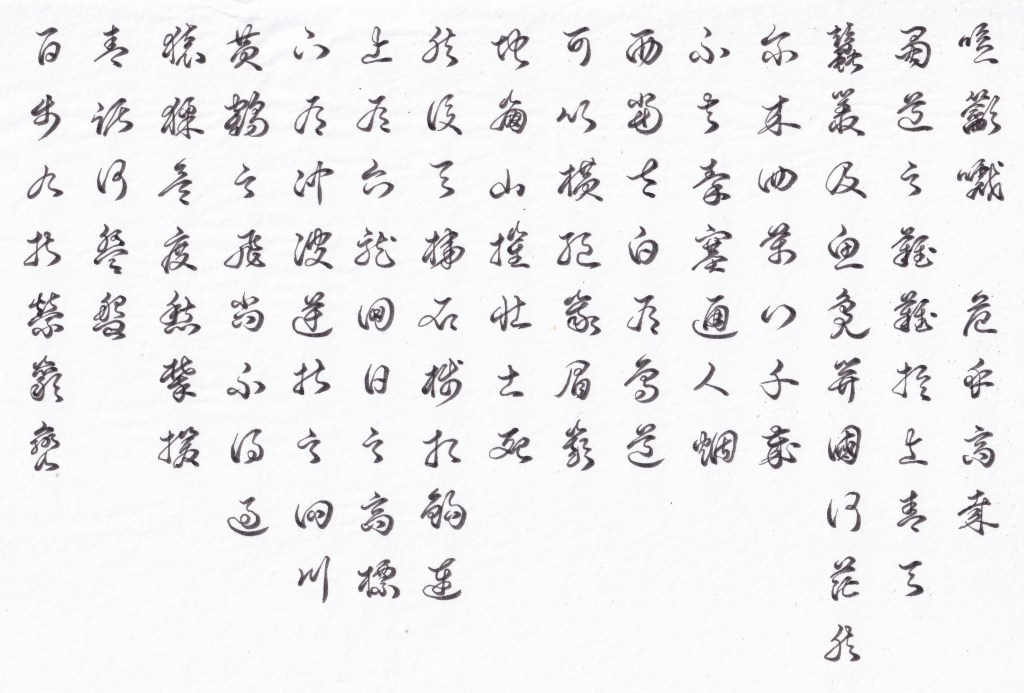 噫籲嚱 危乎高哉
蜀道之難難於上青天
蠶叢及魚鳧開國何茫然
爾來四萬八千歲
不與秦塞通人烟
西當太白有鳥道
可以橫絕峨眉巔
地崩山摧壯士死
然後天梯石棧相鉤連
上有六龍回日之高標
下有沖波逆折之回川
黃鶴之飛尚不得過
猿猱欲度愁攀援
青泥何盤盤
百步九折縈巖巒